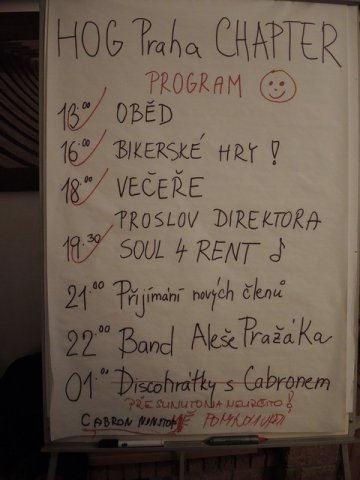 HOG Praha CHAPTER
PROGRAM
13.00 OBĚD
16.00 BIKERSKÉ HRY!
18.00 VEČEŘE
PROSLOV DIREKTORA
19.30 SOUL 4 RENT
21.00 Přijímání nových členů
22.00 Band Aleše Pražáka
01.00 Discohrátky s Cabronem
PŘESUNUTO NA NEURČITO!
CABRON NONSTOP